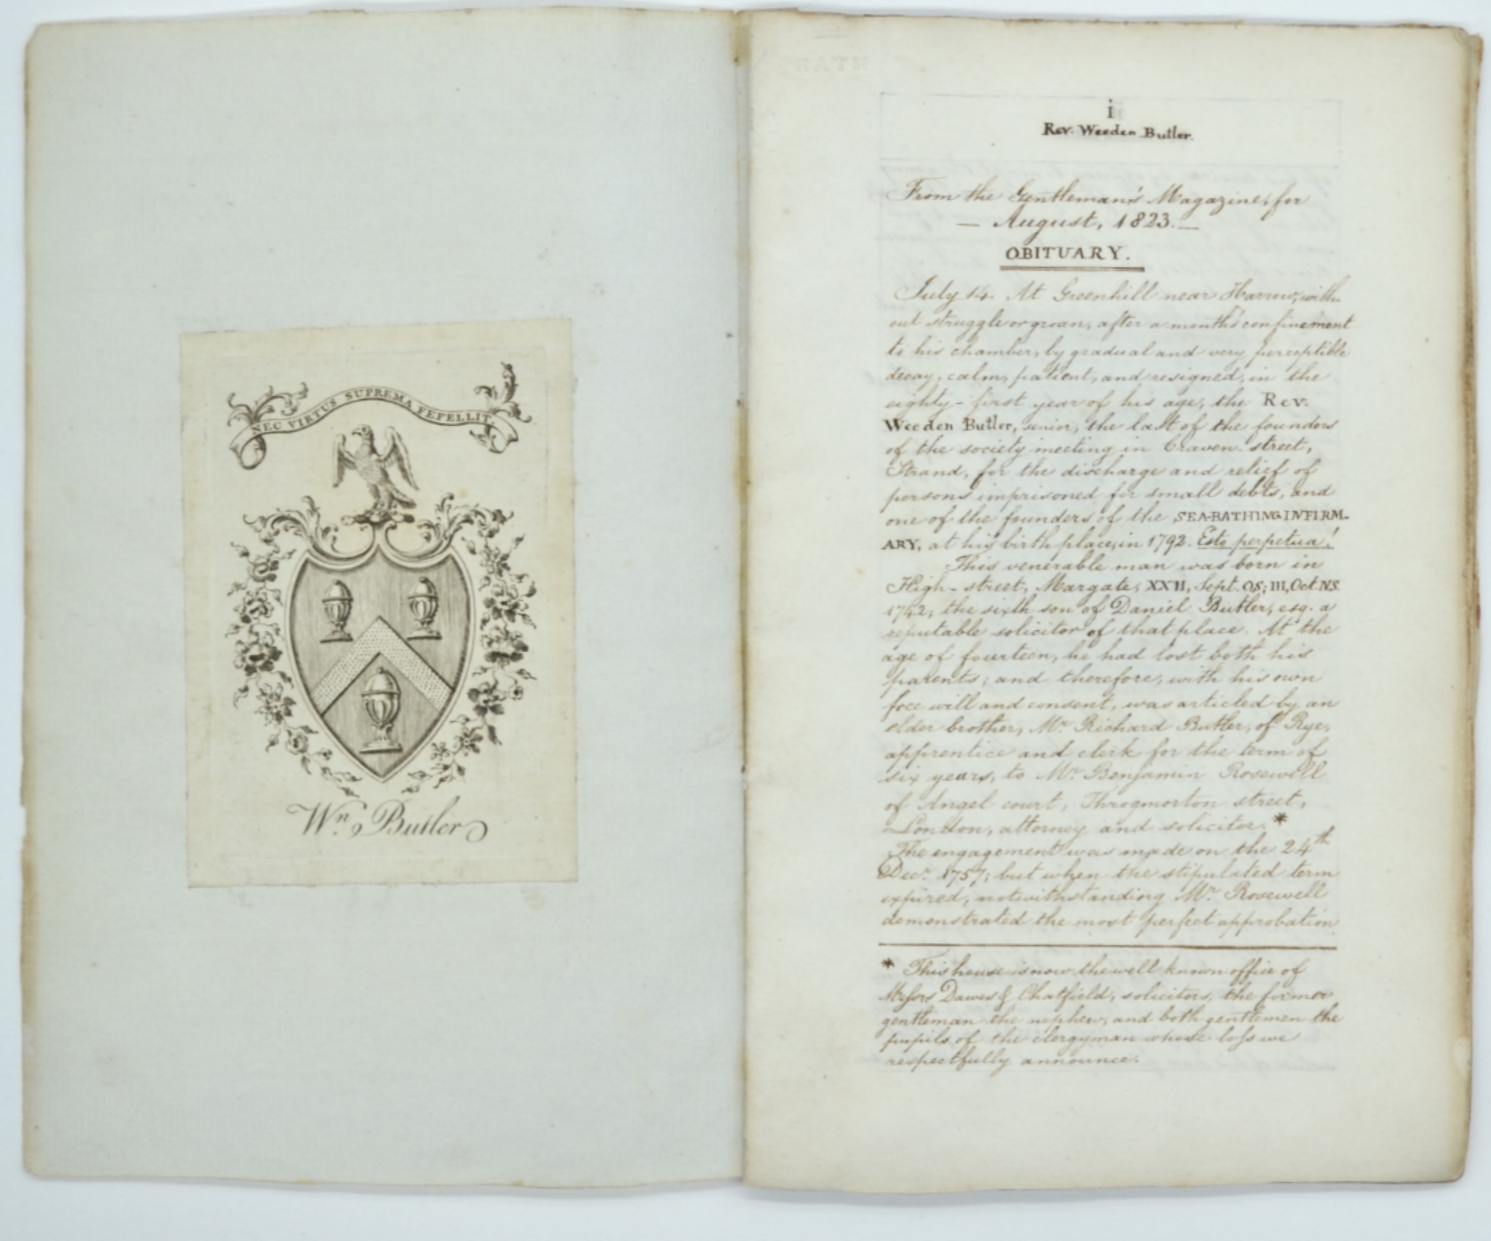 NEC VIRTUS SUPREMA FEFELLIT
Wm. Butler
i
Rev. Weeden Butler.
From the Gentleman's Magazine, for
— August, 1823. —
OBITUARY.
July 14. At Greenhill near Harrow, with-
out struggle or groan, after a month's confinement
to his chamber, by gradual and very perceptible
decay, calm, patient, and resigned, in the
eighty-first year of his age, the Rev.
Weeden Butler, senior, the last of the founders
of the society meeting in Craven-street,
Strand, for the discharge and relief of
persons imprisoned for small debts, and
one of the founders of the SEA-BATHING INFIRM-
ARY, at his birth place, in 1792. Esto perpetua!
This venerable man was born in
High-street, Margate, XXII, Sept. OS; III, Oct. NS.
1742, the sixth son of Daniel Butler, esq. a
reputable solicitor of that place. At the
age of fourteen, he had lost both his
parents; and therefore, with his own
free will and consent, was articled by an
elder brother, Mr. Richard Butler, of Rye,
apprentice and clerk for the term of
six years, to Mr. Benjamin Rosewell
of Angel court, Throgmorton street,
London, attorney and solicitor.*
The engagement was made on the 24th
Decr. 1757; but when the stipulated term
expired, notwithstanding Mr. Rosewell
demonstrated the most perfect approbation
* This house is now the well known office of
Messrs Dawes & Chatfield, solicitors, the former
gentleman the nephew, and both gentlemen the
pupils, of the clergyman whose loss we
respectfully announce.